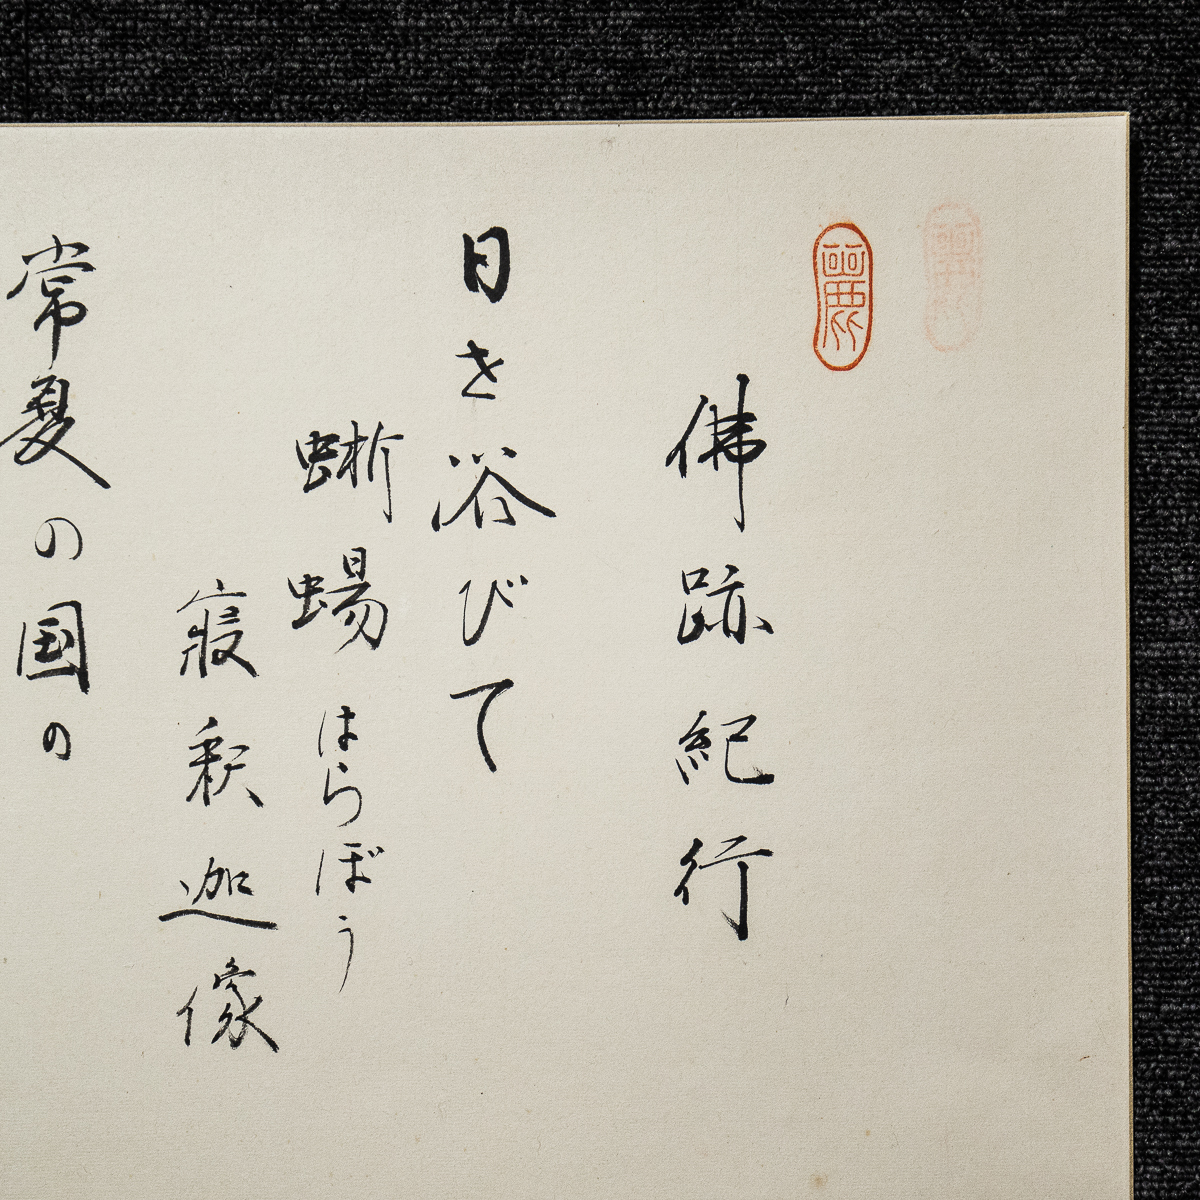 佛跡紀行
日を浴びて
蜥蜴はらばう
寝釈迦像
常夏の国の